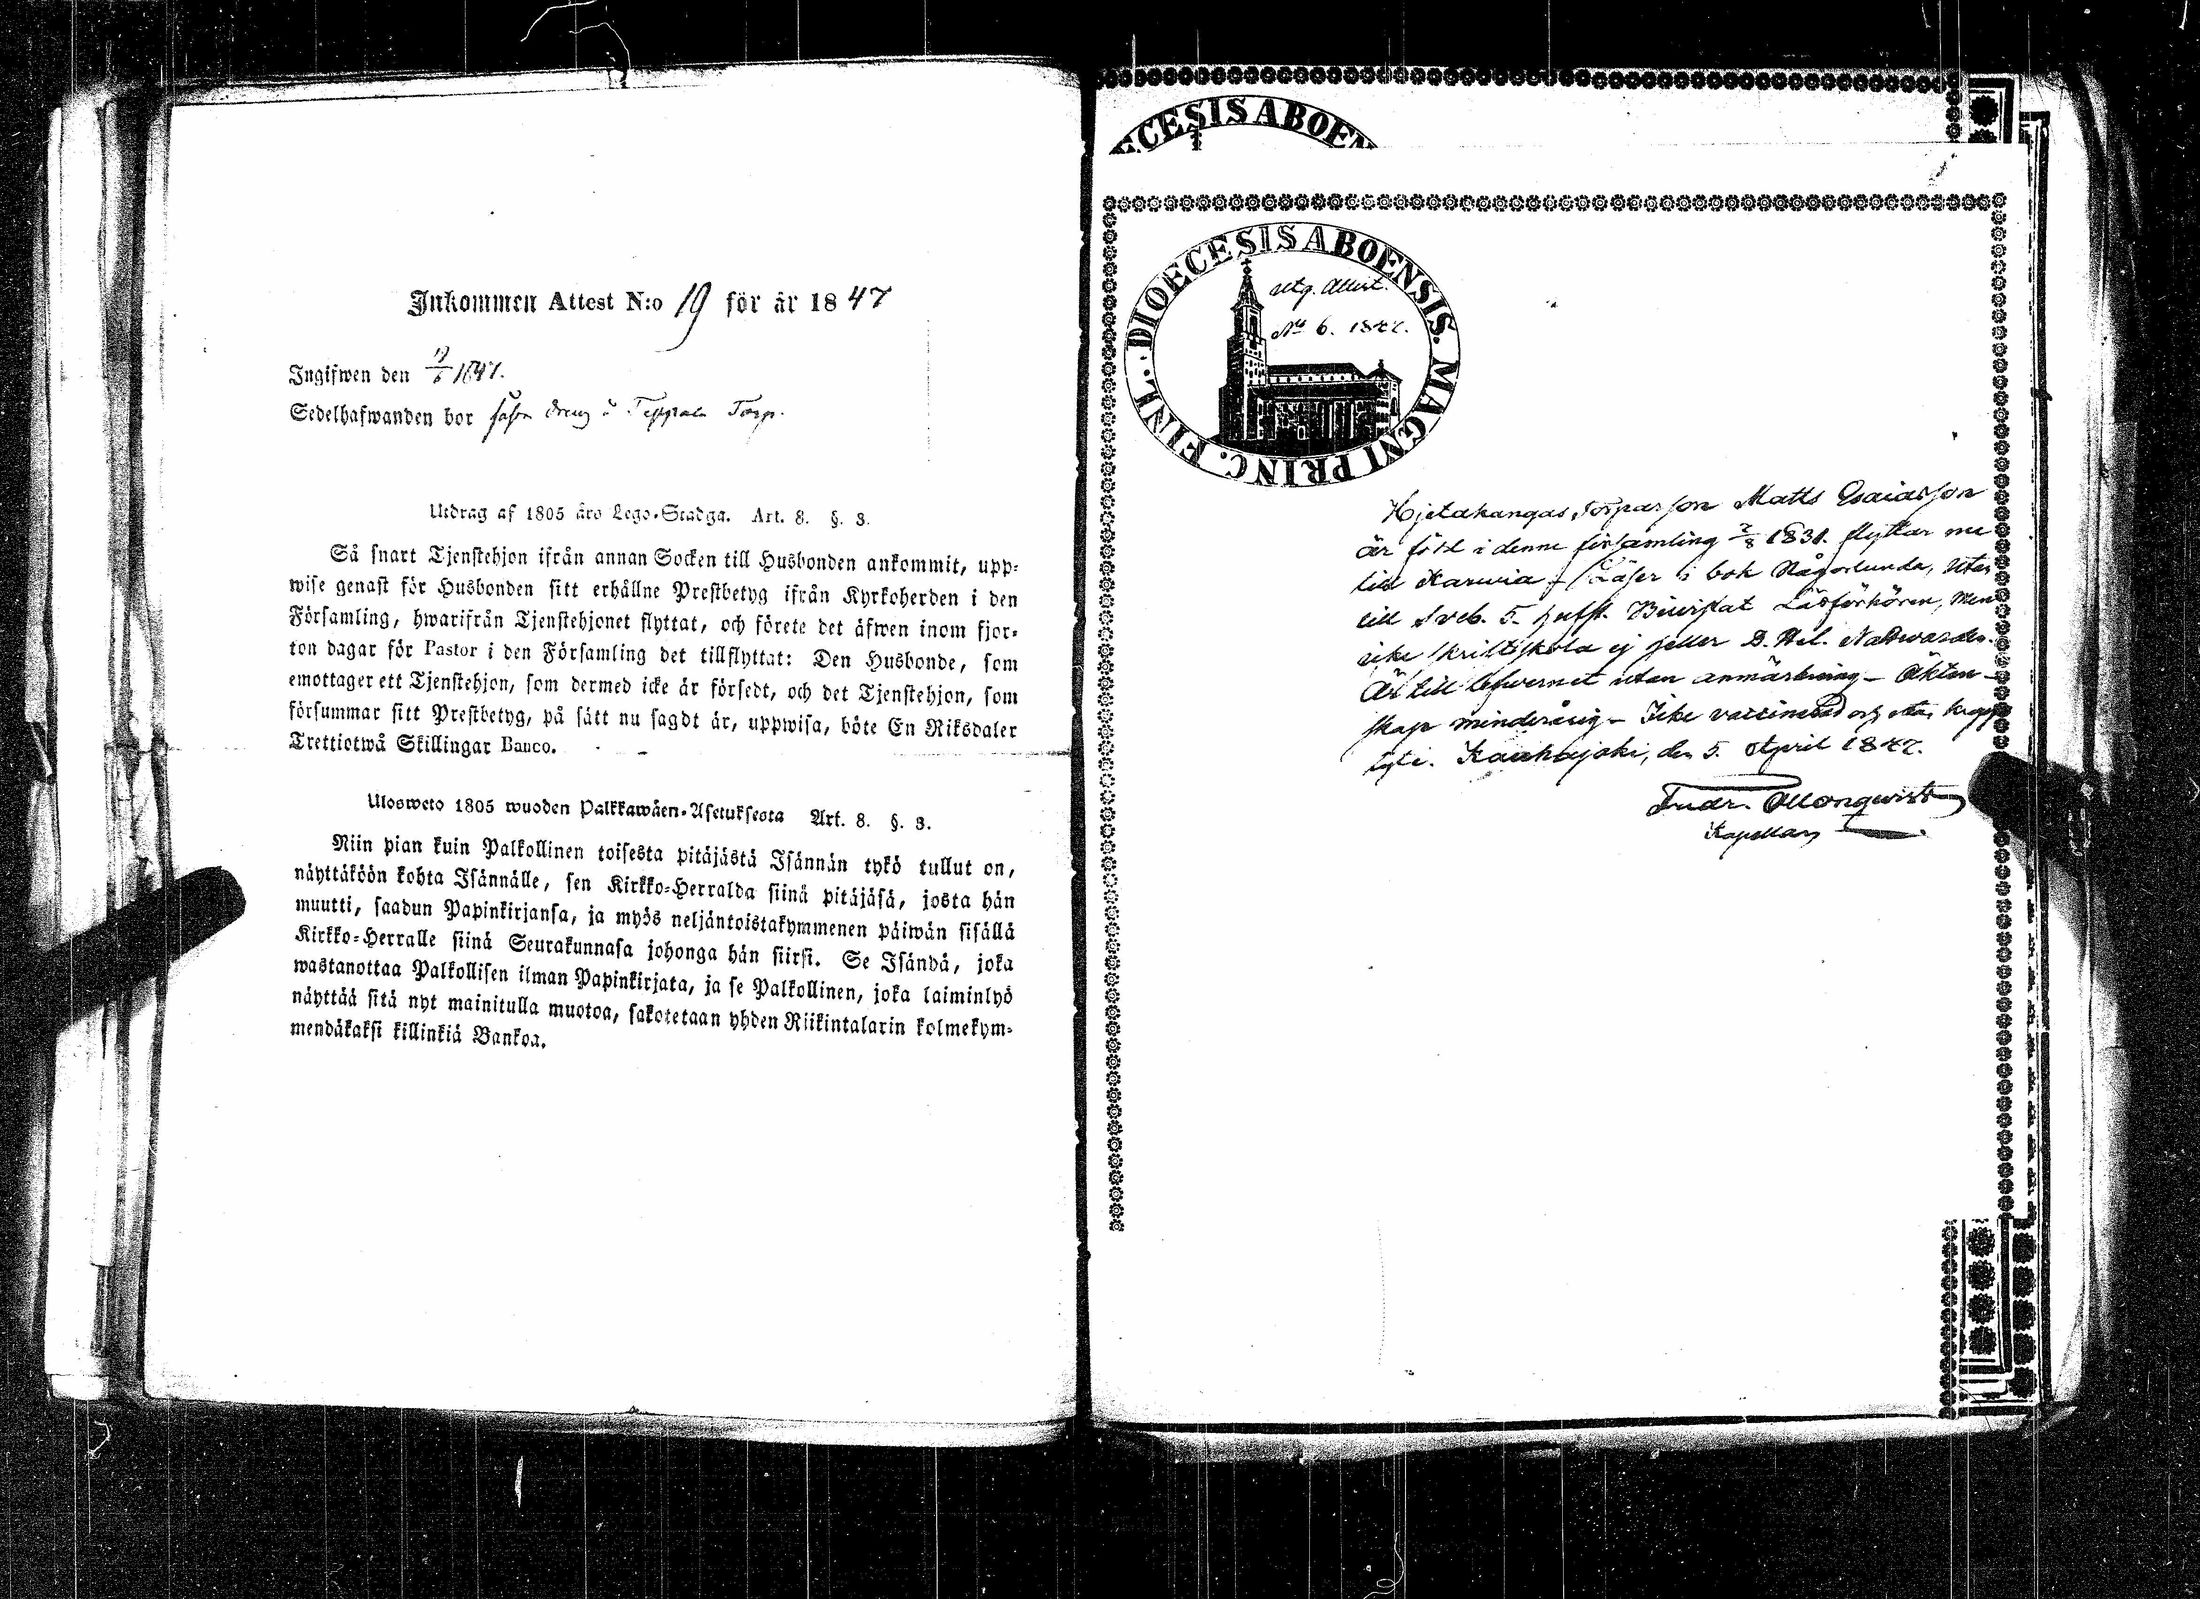 Inkommen Attest N:o 19 för år 1847
Ingifwen den 12/6 1847.
Sedelhafwanden bor såsom dreng å Torp.
Utdrag af 1805 års Lego-Stadga. Art. 8. §. 3.
Så snart Tjenstehjon ifrån annan Socken till Husbonden ankommit, upp-
wise genast för Husbonden sitt erhållne Prestbetyg ifrån Kyrkoherden i den
Församling, hwarifrån Tjenstehjonet flyttat, och förete det äfwen inom fjor-
ton dagar för Pastor i den Församling det tillflyttat: Den Husbonde, som
emottager ett Tjenstehjon, som dermed icke är försedt, och det Tjenstehjon, som
försummar sitt Prestbetyg, på sätt nu sagdt är, uppwisa, böte En Riksdaler
Trettiotwå Skillingar Banco.
Ulosweto 1805 wuoden Palkkawäen-Asetuksesta Art. 8. §. 3.
Niin pian kuin Palkollinen toisesta pitäjästä Isännän tykö tullut on,
näyttäköön kohta Isännälle, sen Kirkko-Herralda siinä pitäjäsä, josta hän
muutti, saadun Papinkirjansa, ja myös neljäntoistakymmenen päiwän sisällä
Kirkko-Herralle siinä Seurakunnasa johonga hän siirsi. Se Isändä, joka
wastanottaa Palkollisen ilman Papinkirjata, ja se Palkollinen, joka laiminlyö
näyttää sitä nyt mainitulla muotoa, sakotetaan yhden Riikintalarin kolmekym-
mendäkaksi killinkiä Bankoa.
ECESIS ABOEN
DIOECESIS ABOENSIS. MAGNI PRINC. FINL.
Utg. Attest.
No 6. 1847.
Hjetakangas Torparson Matts Esaiasson
är född i denne församling 2/8 1831. flyttar nu
till Karvia - Läser i bok någorlunda, utan
till Sveb. 5. hufst. Bevistat Läsförhören, men
icke skriftskola ej heller D. Hel. Nattvarden.
Är till lefvernet utan anmärkning - Äkten-
skap minderårig - Icke vaccinerad och utan kopp
Kauhajoki, den 5. April 1847.
Kapellan